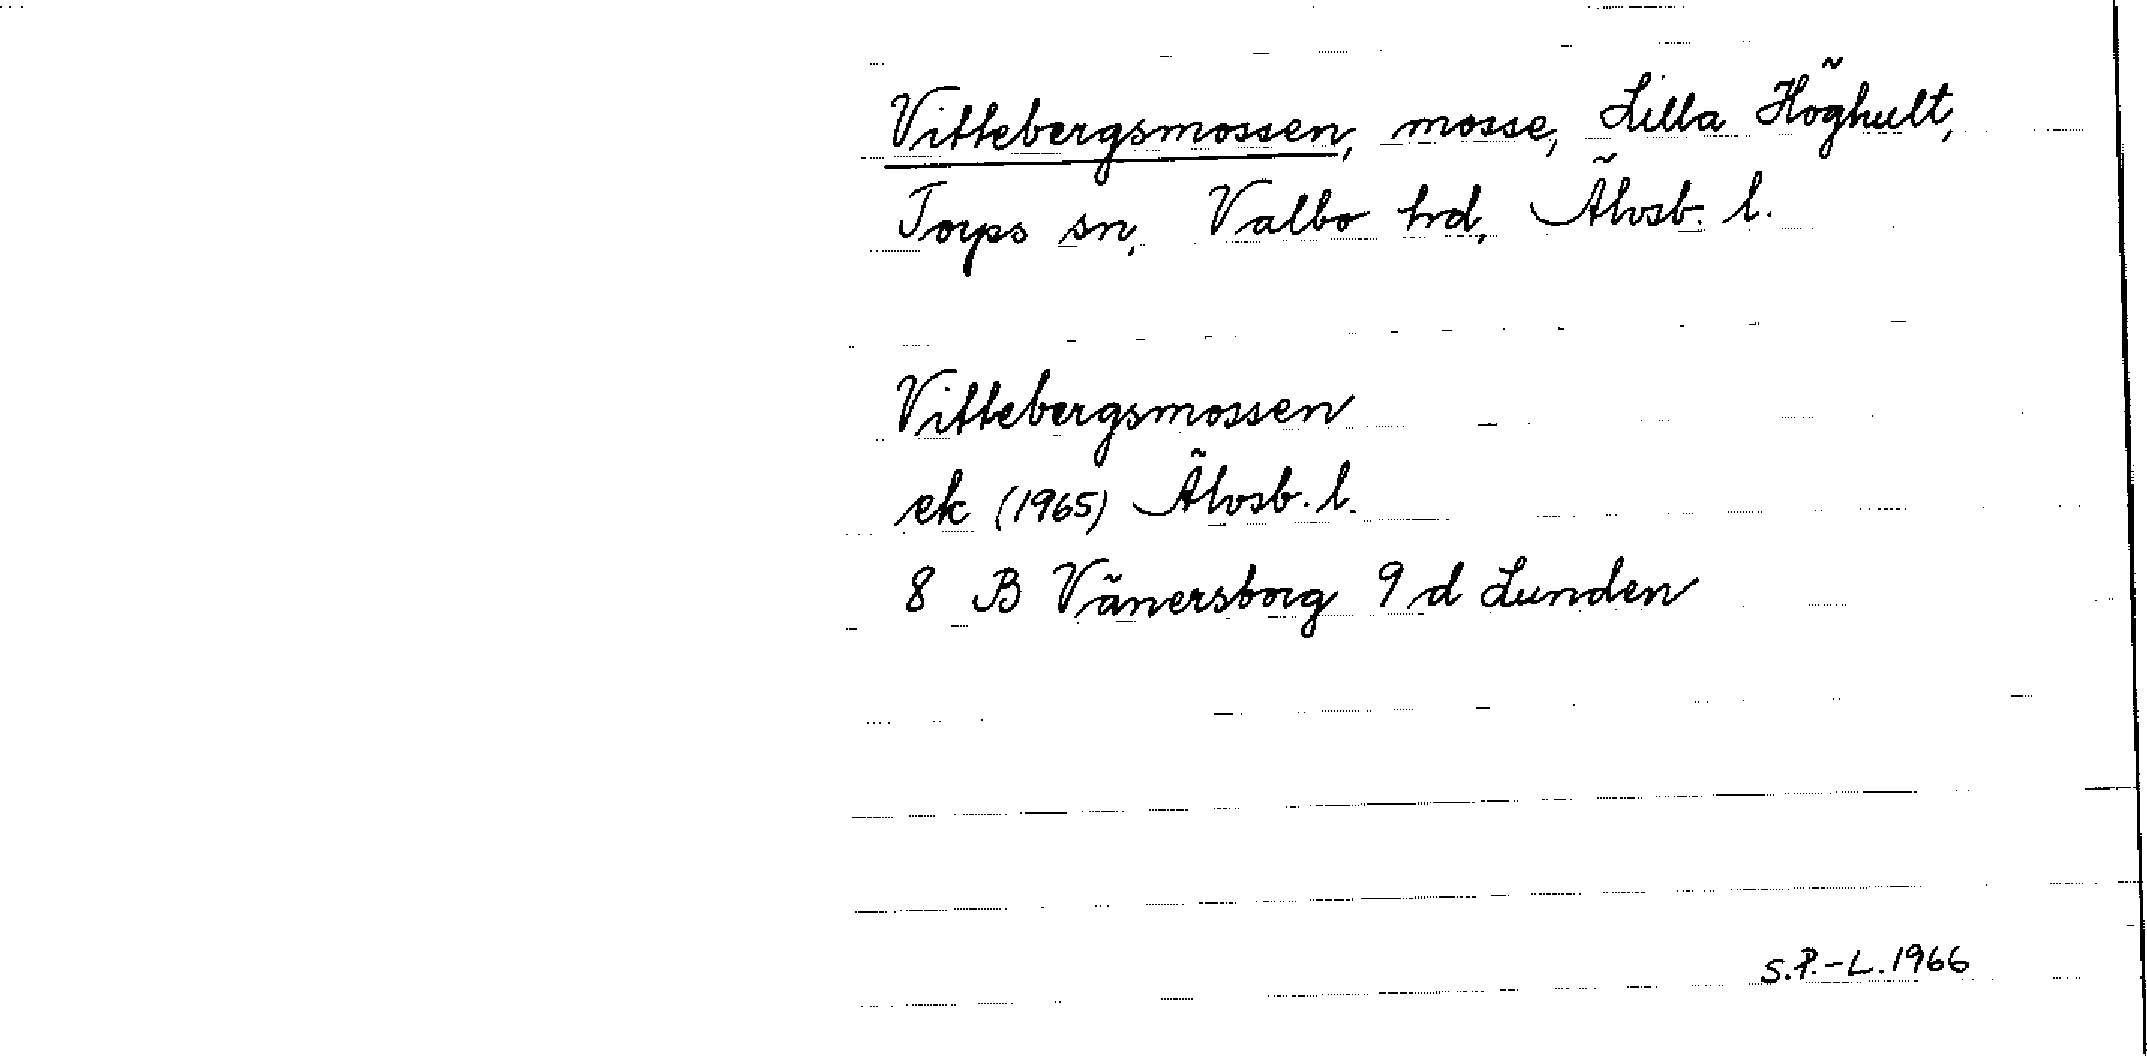 Vittebergsmossen, mosse, Lilla Höghult,
Torps sn, Valbo hd, Älvsb. l.
Vittebergsmossen
ek (1965) Älvsb. l.
8 B Vänersborg 9 d Lunden
S.P.-L. 1966